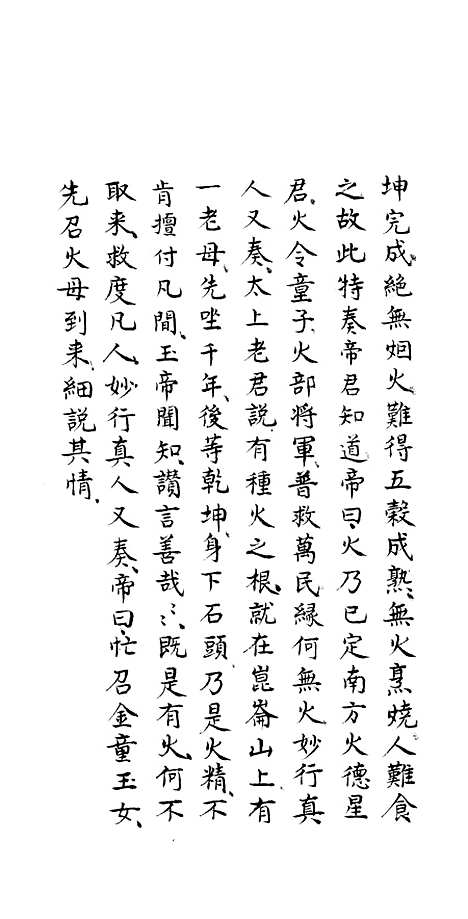 坤完成、絕無烟火、難得五穀成熟、無火烹燒、人難食
之、故此特奏帝君知道、帝曰、火乃已定南方火德星
君、火令童子、火部將軍、普救萬民、緣何無火、妙行真
人又奏、太上老君說、有種火之根、就在崑崙山上、有
一老母、先坐千年、後等乾坤、身下石頭、乃是火精、不
肯擅付凡間、玉帝聞知、讃言善哉〻〻、既是有火、何不
取来、救度凡人、妙行真人又奏、帝曰、忙召金童玉女、
先召火母到来、細說其情、